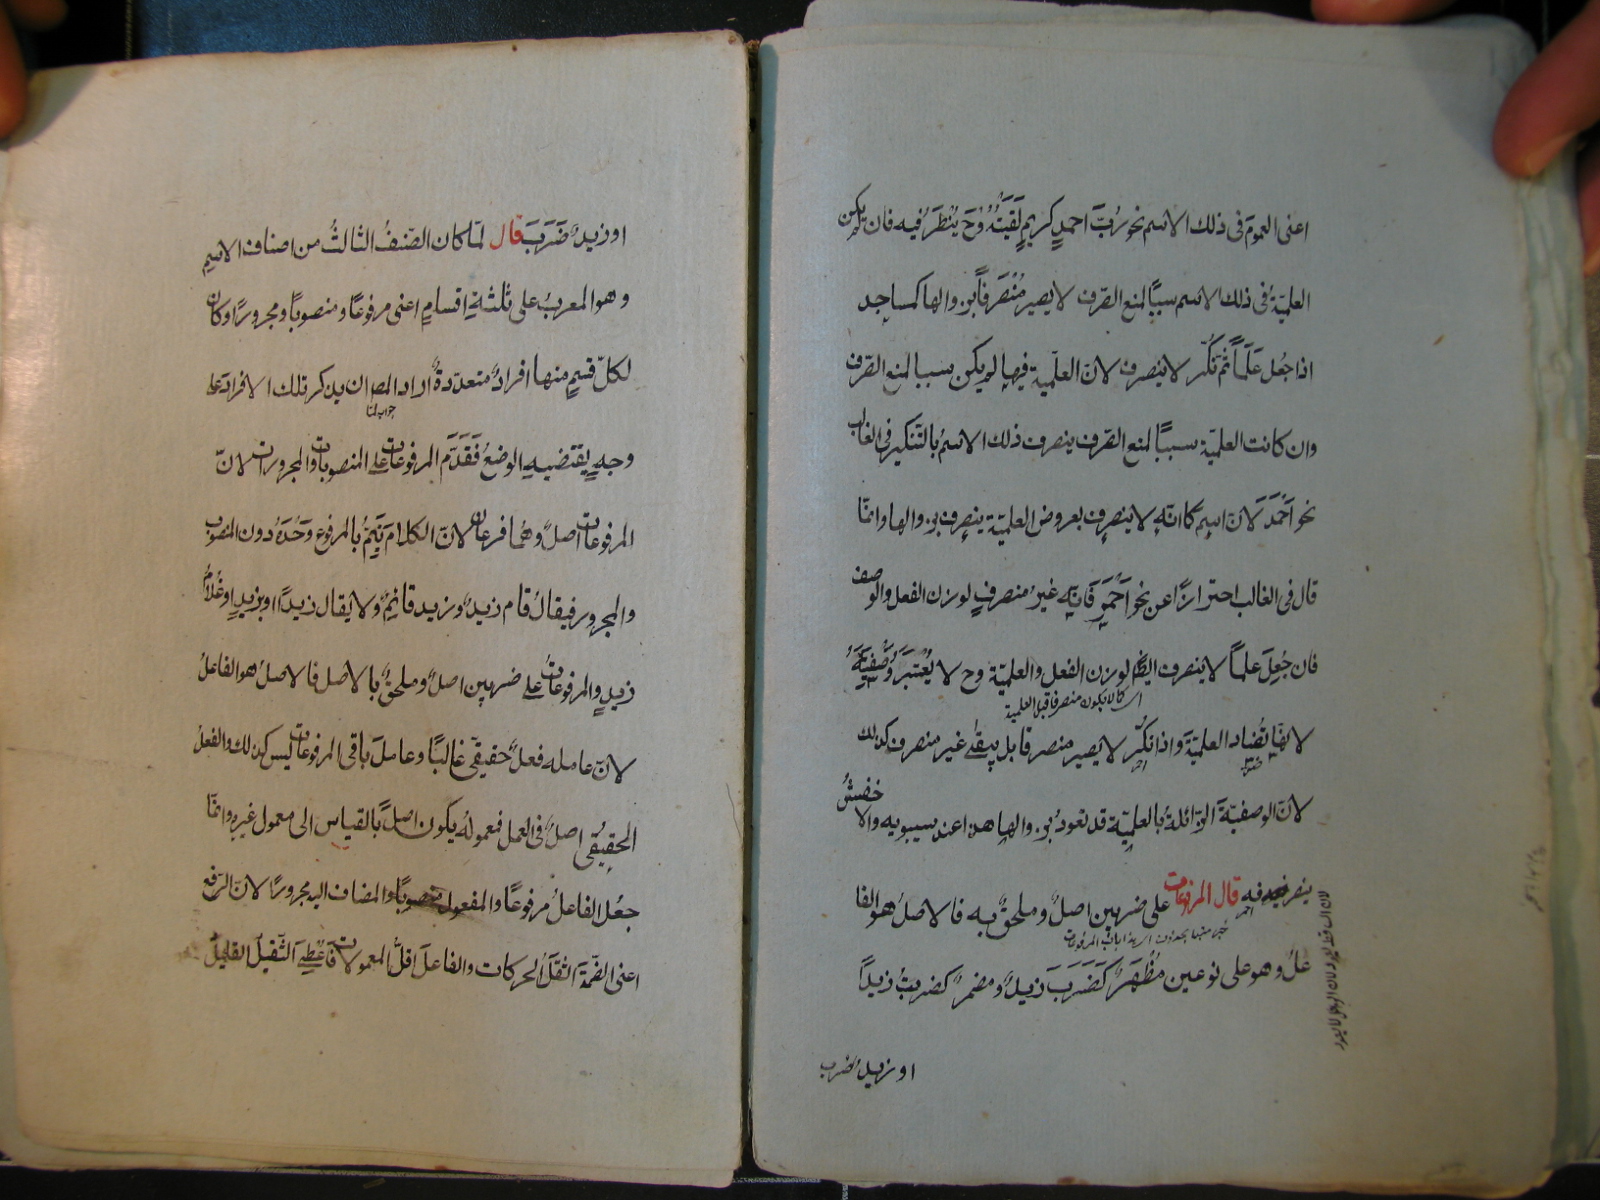 اعنى العموم فى ذلك الاسم نحو رُبَّ احمدٍ كريمٍ لَقيتُهُ وح يُنظَرُ فيه فان لم يكن
العلميّة فى ذلك الاسم سببًا لمنع الصّرف لا يصير مُنصَرفًا بزوالها كمساجد
اذا جُعل عَلَمًا ثُمَّ نُكِّر لا ينصرف لانّ العلميّة فيها لم يكن سببا لمنع الصّرف
وان كانت العلميّة سببًا لمنع الصّرف ينصرف ذلك الاسمُ بالتّنكير فى الغالب
نحو اَحْمَدَ لانّ اسم كما انّه لا ينصرف بعروض العلميّة ينصرف بزوالها وانمّا
قال فى الغالب احترازًا عن نحو اَحْمَر فَانّه غيرُ منصرفٍ لوزن الفعل والوصف
فان جُعِلَ علمًا لا ينصرف ايضًا لوزن الفعل والعلميّة وح لا يُعْتبَرُ وَصْفِيَّتُهُ
اى كما لا يكون منصرفا قبل العلمية
لانّها تُضاد العلميّة واذا نُكِّر لا يصير منصرفا بل يبقى غير منصرف كذلك
لانّ الوصفيّة الزّائلة بالعلميّة قد تعودُ بزوالها هذا عند سيبويه والاخفشُ
ينصرفه فيه قال المرفوعات على ضربين اصلٌ وملحقٌ به فالاصلُ هو الفا
علُ وهو على نوعين مُظْهَرٌ كَضَرَبَ زيدٌ ومضمرٌ كضربتُ زيدًا
او زيدٌ ضرب
او زيدٌ ضَرَبَ قال لمّا كان الصّنفُ الثّالثُ من اصناف الاسم
وهو المعربُ على ثلثةِ اقسامٍ اعنى مرفوعًا ومنصوبًا ومجرورًا وكان
لكلّ قسمٍ منها افرادٌ متعدّدةٌ اراد المص ان يذكر تلك الافراد على
جواب لمّا
وجهٍ يقتضيهِ الوضعُ فَقَدَّم المرفوعات على المنصوبات والمجرورات لانّ
المرفوعات اصلٌ وهُما فرعان لانّ الكلام يَتِمُّ بالمرفوع وَحْدَهُ دون المنصوب
والمجرور فيقالُ قام زيدٌ وزيد قائمٌ ولا يقال زيدًا او بزيدٍ او غُلامُ
زيدٍ والمرفوعاتُ على ضربين اصلٌ وملحقٌ بالاصل فالاصلُ هو الفاعلُ
لانّ عامله فعلٌ حقيقىّ غالبًا وعاملَ باقى المرفوعات ليس كذلك والفعلُ
الحقيقىُّ اصلٌ فى العمل فمعمولُهُ يكون اصلاً بالقياس الى معمول غيره وانمّا
جعل الفاعلُ مرفوعًا والمفعول منصوبًا والمضاف اليه مجرورًا لانّ الرّفع
اعنى الضّمّةَ اثقلُ الحركات والفاعلَ اقلُّ المعمولات فَاُعْطِىَ الثّقيلَ القليلُ